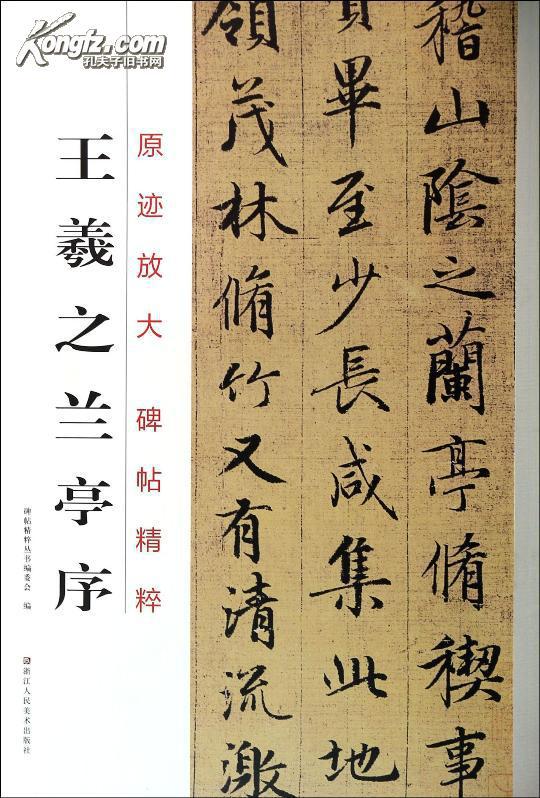 Kongfz.com
孔夫子旧书网
原迹放大 碑帖精粹
王羲之兰亭序
碑帖精粹丛书编委会 编
浙江人民美术出版社
稽山陰之蘭亭脩稧事
畢至少長咸集此地
領茂林脩竹又有清流激